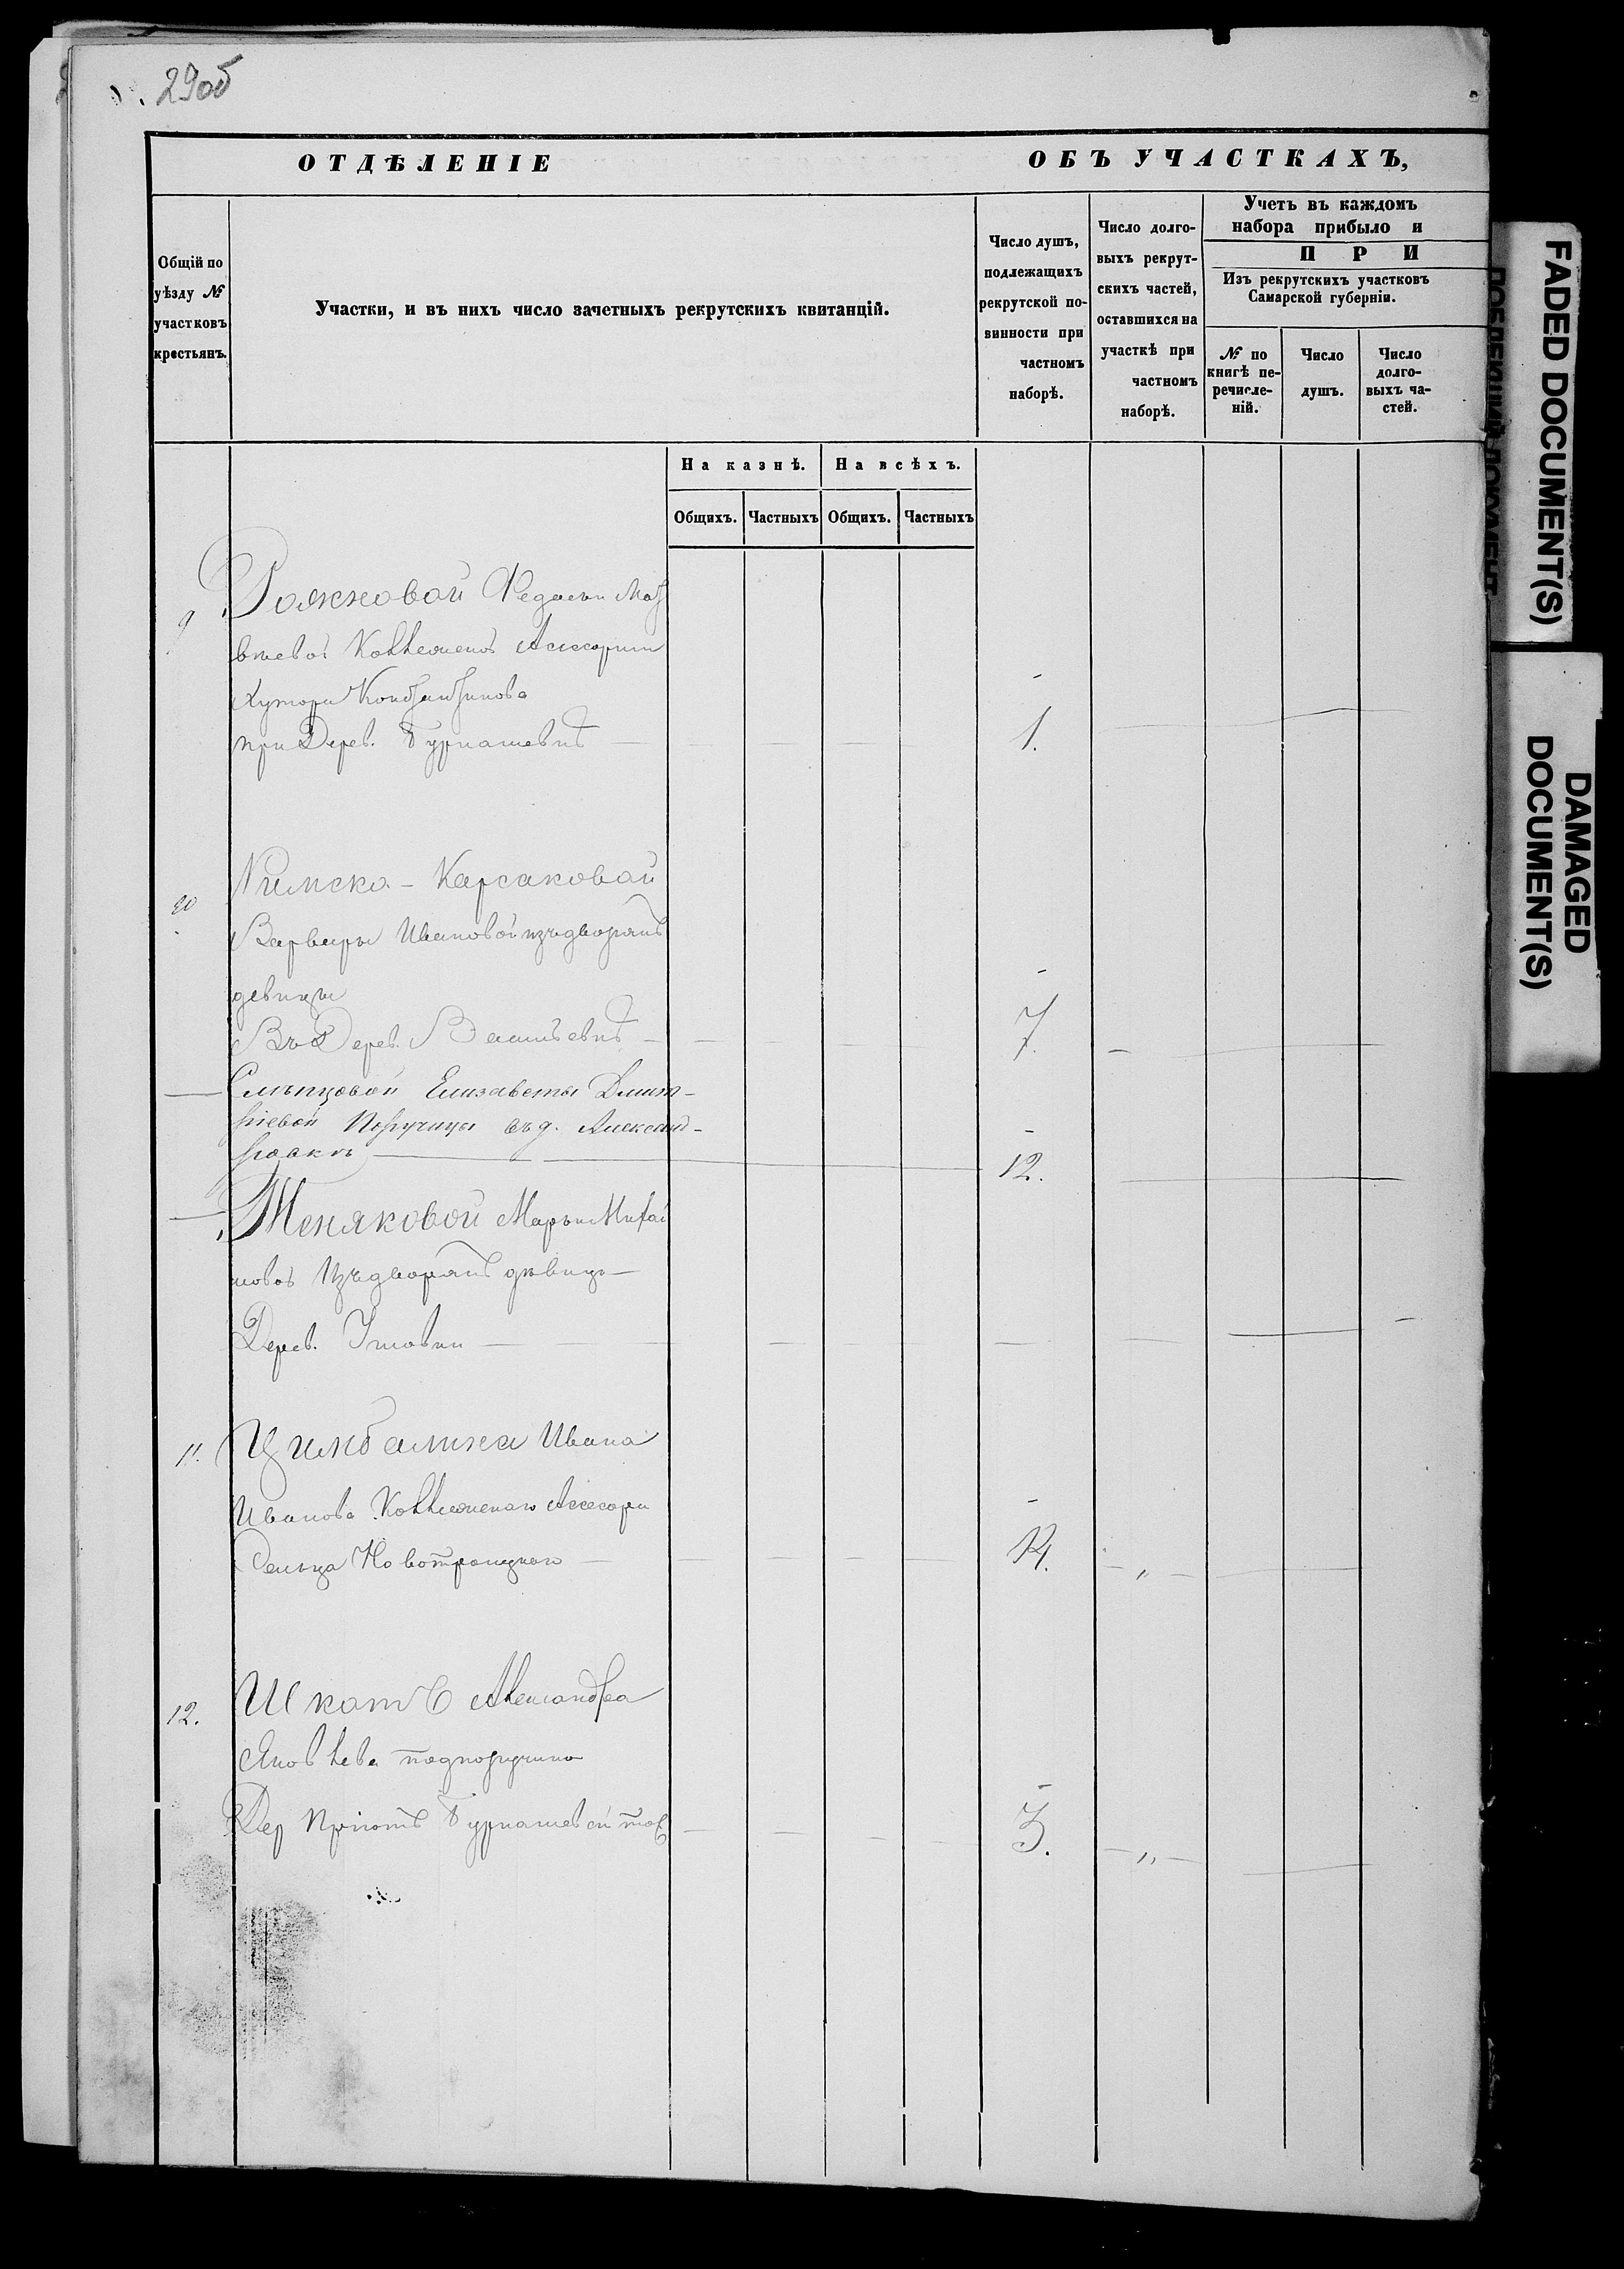 29об
ОТДѢЛЕНІЕ ОБЪ УЧАСТКАХЪ,
Общій по уѣзду № участковъ крестьянъ.
Участки, и въ нихъ число зачетныхъ рекрутскихъ квитанцій.
Число душъ, подлежащихъ рекрутской повинности при частномъ наборѣ.
Число долговыхъ рекрутскихъ частей, оставшихся на участкѣ при частномъ наборѣ.
Учетъ въ каждомъ
набора прибыло и
ПРИ
Изъ рекрутскихъ участковъ
Самарской губерніи.
№ по книгѣ перечисленій.
Число душъ.
Число долговыхъ частей.
На казнѣ. На всѣхъ.
Общихъ. Частныхъ Общихъ. Частныхъ
9 Федосьи Мат
вѣевой Коллежской Асесорши
Хутора Константинова
при Дерев. Бурнашевкѣ 1.
Римско-Карсаковай
Варвары Ивановой изъ дворянъ
девицы
Въ Дерев. 7.
Слѣпцовой Елизаветы Дмит-
ріевой Поручицы въ д. Александ-
ровкѣ 12.
Марьи Михай
ловой Изъ дворянъ дѣвицы
Дерев.
11. Цимбалина Ивана
Иванова Коллежскаго Асесора
Сельца Новотроицкаго 14.
12. Шкотъ Александра
Яковлева подпоручика
Дер Пріютъ Бурнашевой тож 3. „
FADED DOCUMENT(S)
DAMAGED
DOCUMENT(S)